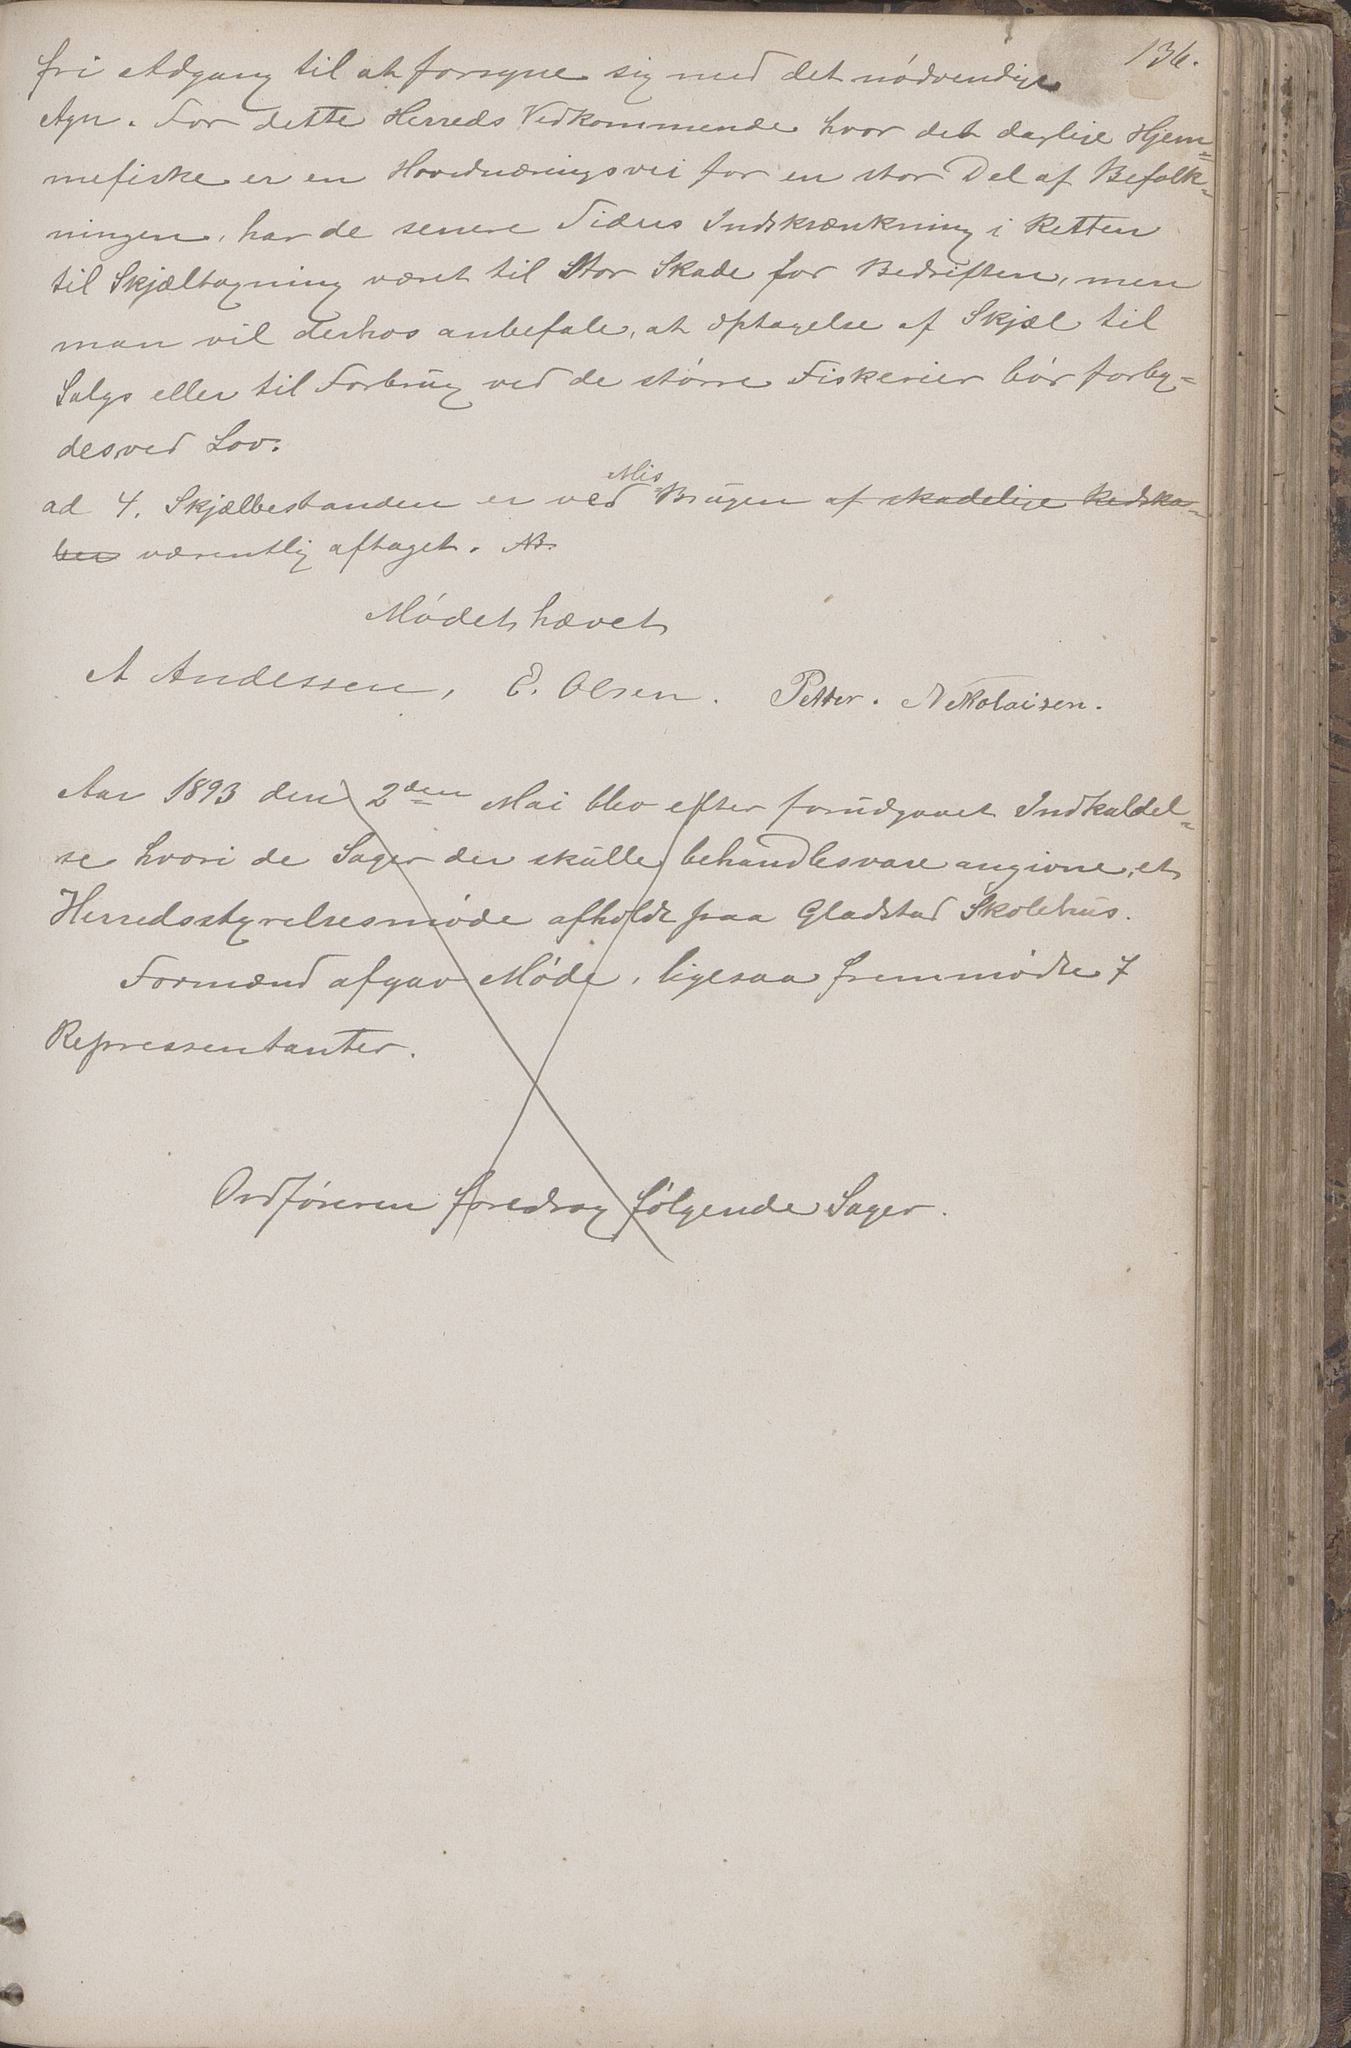 136.
fri Adgang til at forsyne sig med det nødvendige
Agn. For dette Herreds Vedkommende hvor det daglige Hjem=
mefiske er en Hovednæringsvei for en stor Del af Befolk=
ningen, har de senere Tiders Indskrænkning i Retten
til Skjæltagning været til Stor Skade for Bedriften, men
man vil derhos anbefale, at Optagelse af Skjæl til
Salgs eller til Forbrug ved de større Fiskerier bør forby=
des ved Lov.
Mis
ad 4. Skjælbestanden er ved Brugen af skadelige Redska=
ber væsentlig aftaget. AB.
Mødet hævet
A Andessen, E. Olsen. Petter. Nekolaisen.
Aar 1893 den 2den Mai blev efter forudgaaet Indkaldel=
se hvori de Sager der skulle behandles vare angivne, et
Herredsstyrelsesmøde afholdt paa Gladstad Skolehus.
Formænd afgav Møde, ligesaa fremmødte 7
Repressentanter.
Ordføreren foredrog følgende Sager.